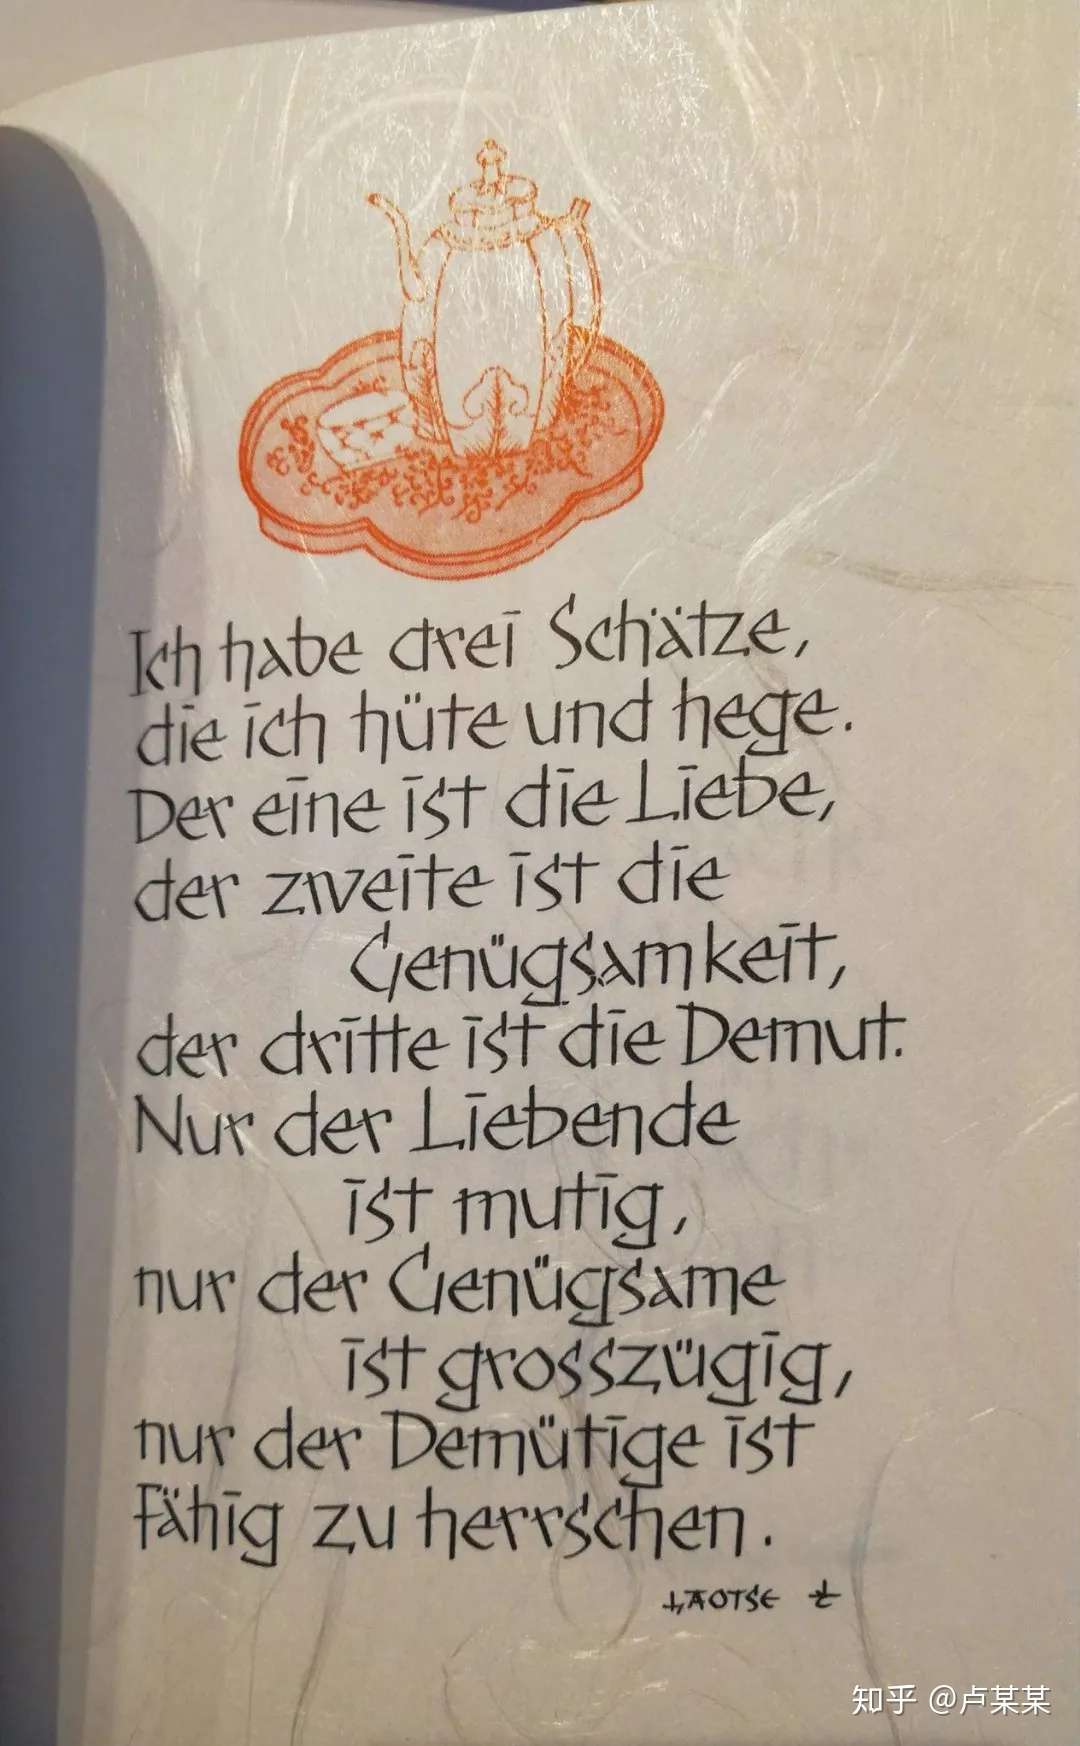 Ich habe drei Schätze,
die ich hüte und hege.
Der eine ist die Liebe,
der zweite ist die
Genügsamkeit,
der dritte ist die Demut.
Nur der Liebende
ist mutig,
nur der Genügsame
ist grosszügig,
nur der Demütige ist
Fähig zu herrschen.
LAOTSE
知乎 @卢某某